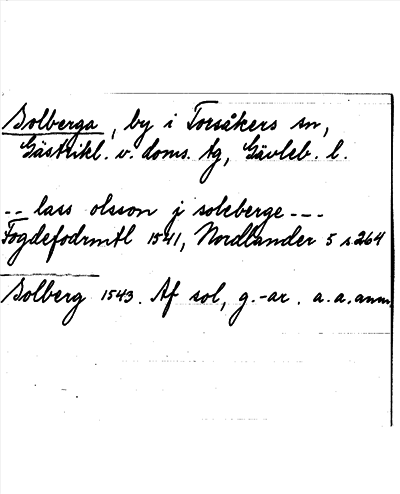 Solberga, by i Torsåkers sn,
Gästrikl. v. doms. tg, Gävleb. l.
-- lass olsson j soleberge ---
Fogdefodrmtl 1541, Nordlander 5 s 264
Solberg 1543. Af sol, g.-ar. a.a.anm.